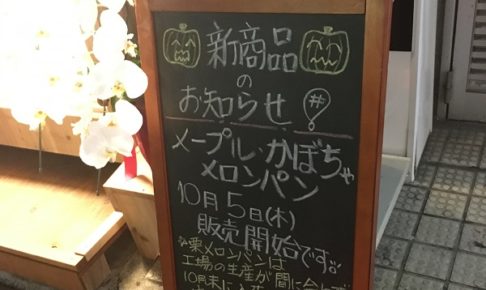 新商品
の
お知らせ!
メープルかぼちゃ
メロンパン
10月5日(木)
販売開始です
栗メロンパンは
工場の生産が間に合わず
10月末に